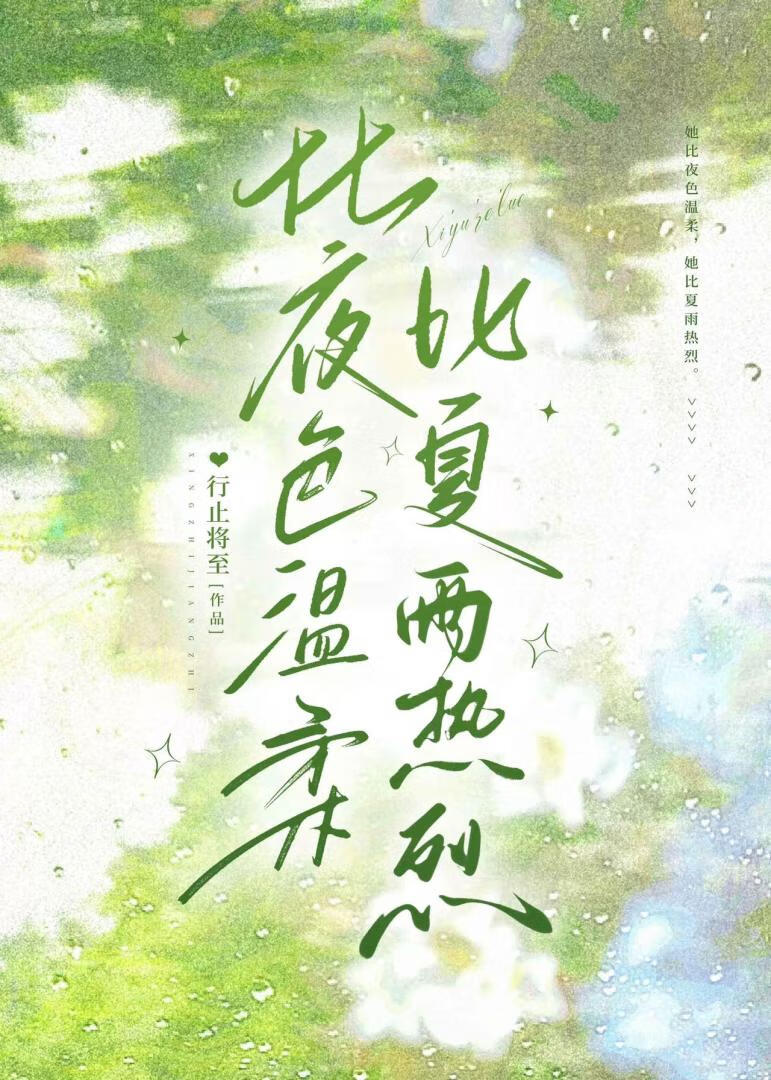 比夜色温柔
比夏雨热烈
她比夜色温柔，她比夏雨热烈。
>>>> >>>
行止将至[作品]
XINGZHIJIANGZHI